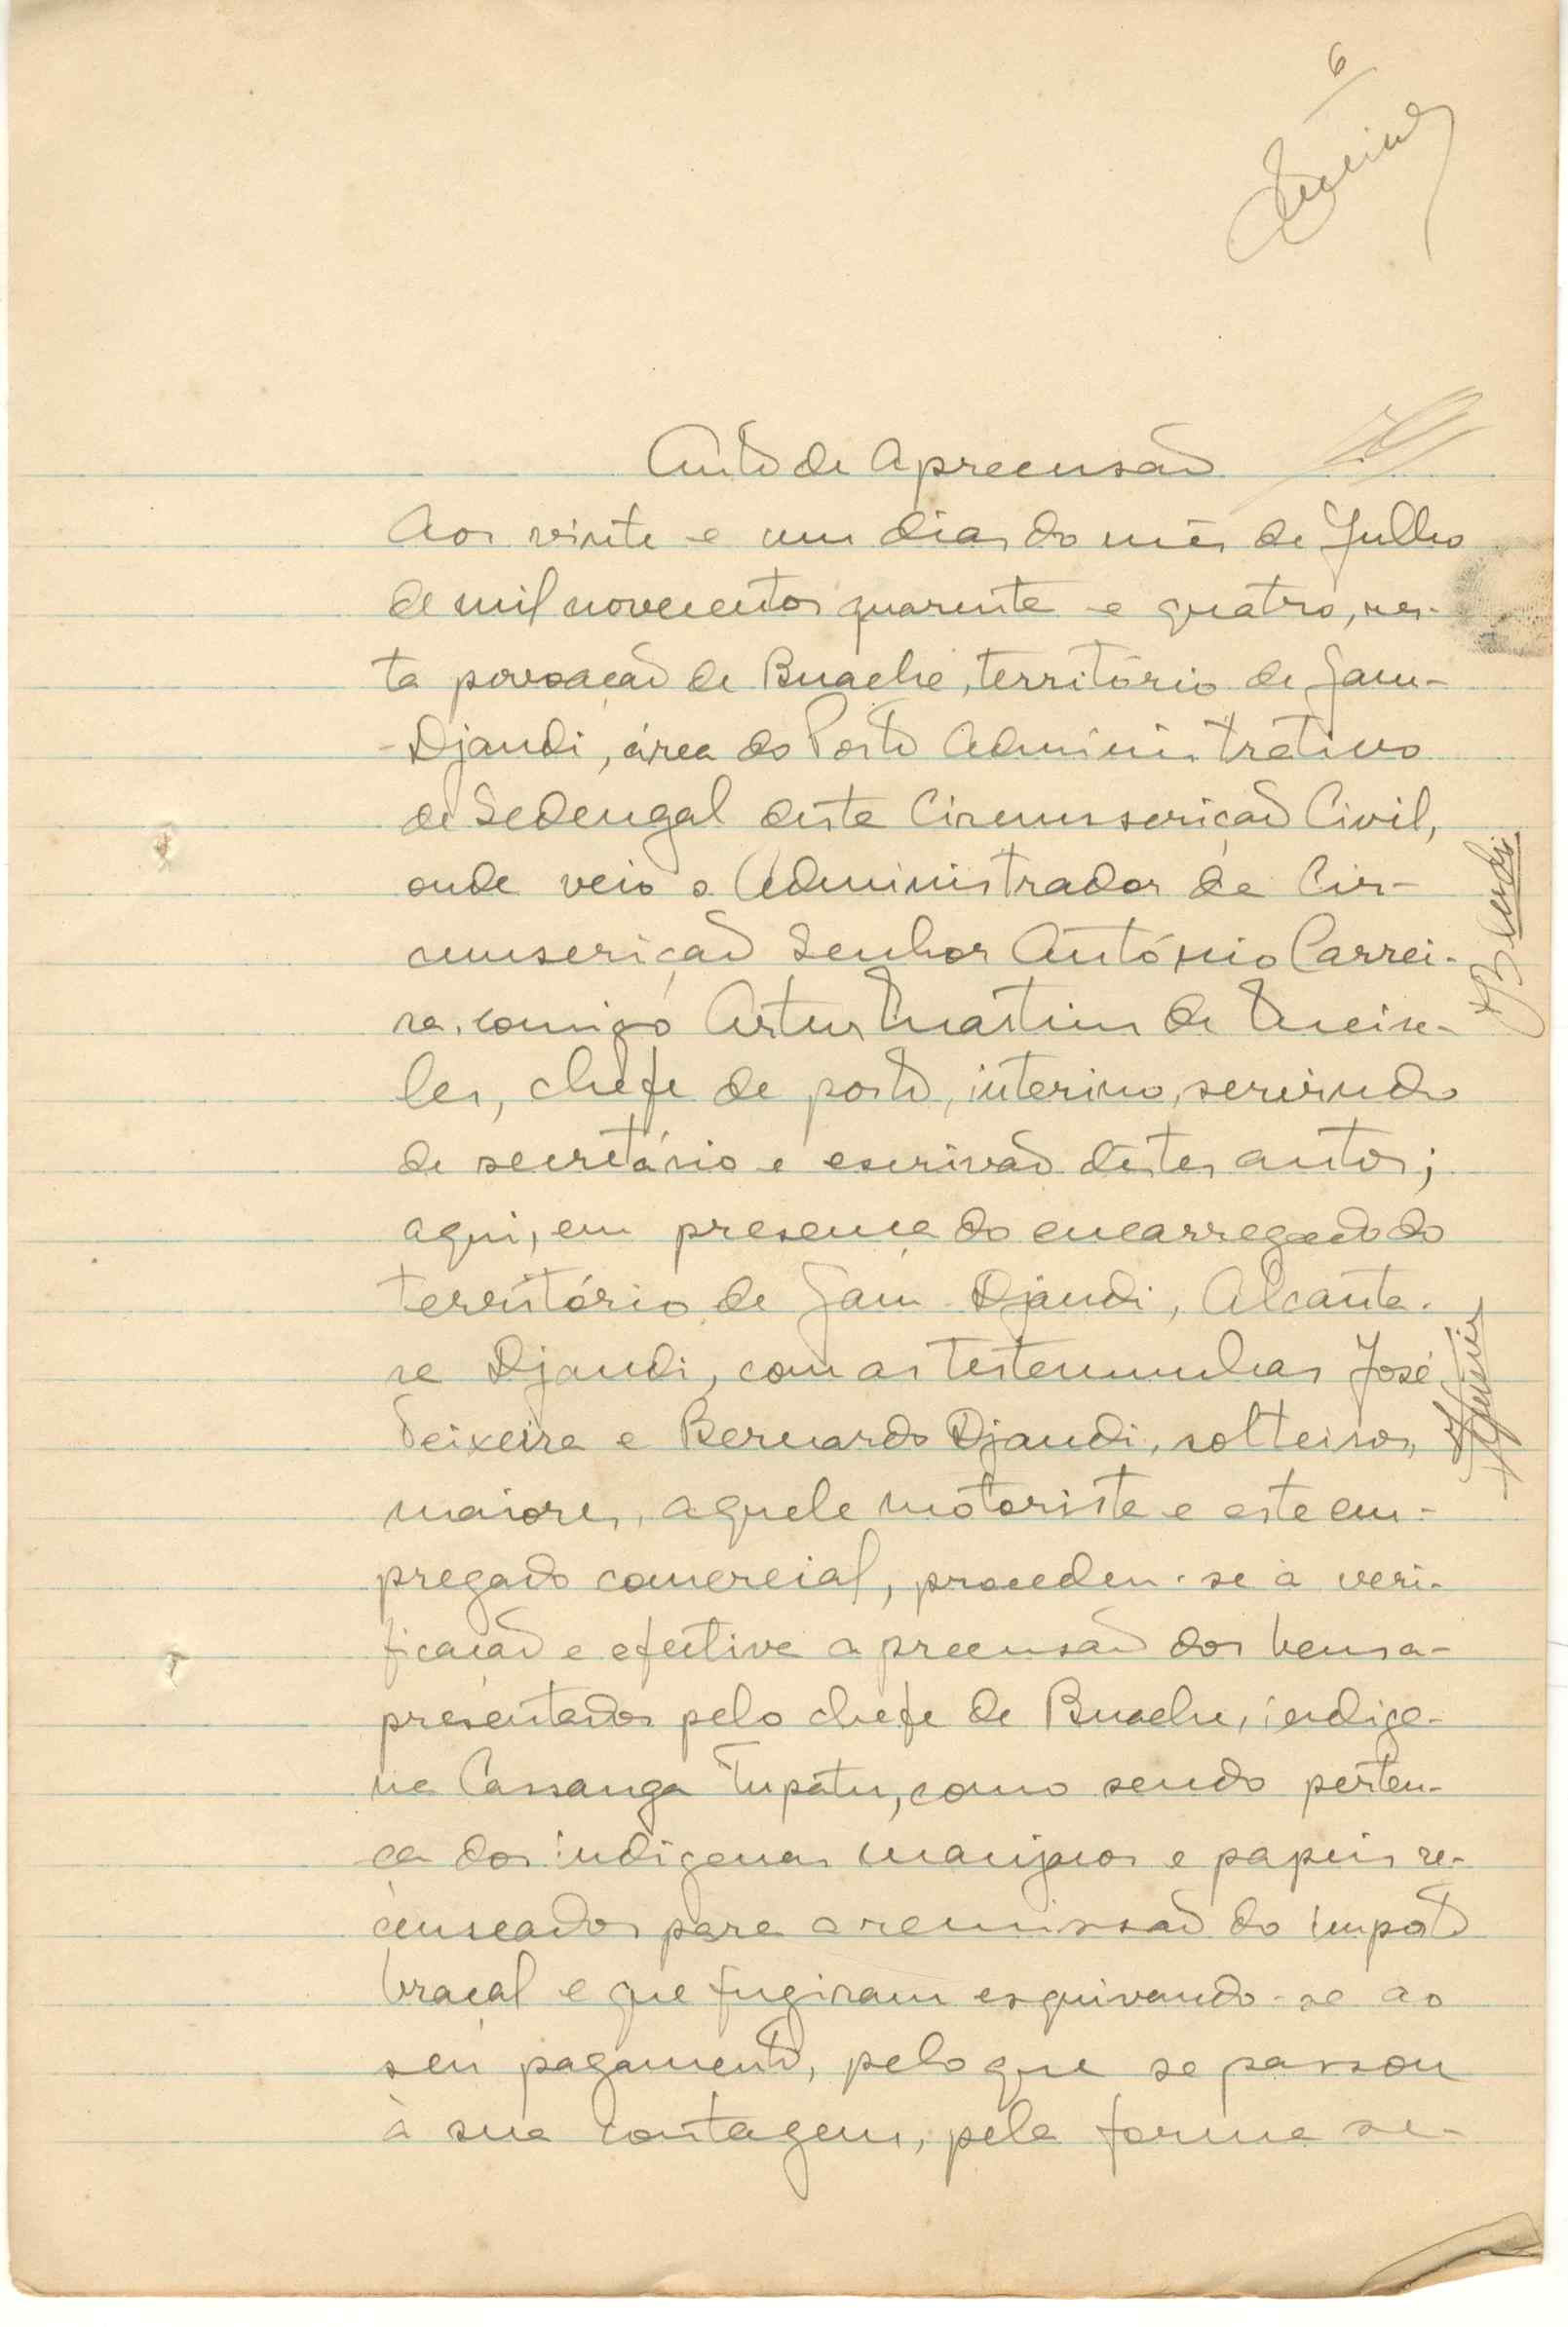 6
Auto de Apreensão
Aos vinte e um dias do mês de Julho
de mil novecentos quarenta e quatro, nes-
ta povoação de Buache, território de Jam-
-Djandi, área do Posto Administrativo
de Sedengal desta Circunscrição Civil,
onde veio o Administrador da Cir-
cunscrição Senhor António Carrei-
ra, comigo Artur Martins de Meire-
les, chefe de posto, interino, servindo
de secretário e escrivão dêstes autos;
aqui, em presença do encarregado do
território de Jam-Djandi, Alcanta-
ra Djandi, com as testemunhas José
Teixeira e Bernardo Djandi, solteiros,
maiores, aquele motorista e este em-
pregado comercial, procedeu-se à veri-
ficação e efectiva apreensão dos bens a-
presentados pelo chefe de Buache, indige-
na Cassanga Tupatu, como sendo perten-
ça dos indigenas manjacos e papeis re-
censeados para a remissão do imposto
braçal e que fugiram esquivando-se ao
seu pagamento, pelo que se passou
à sua contagem, pela forma se-